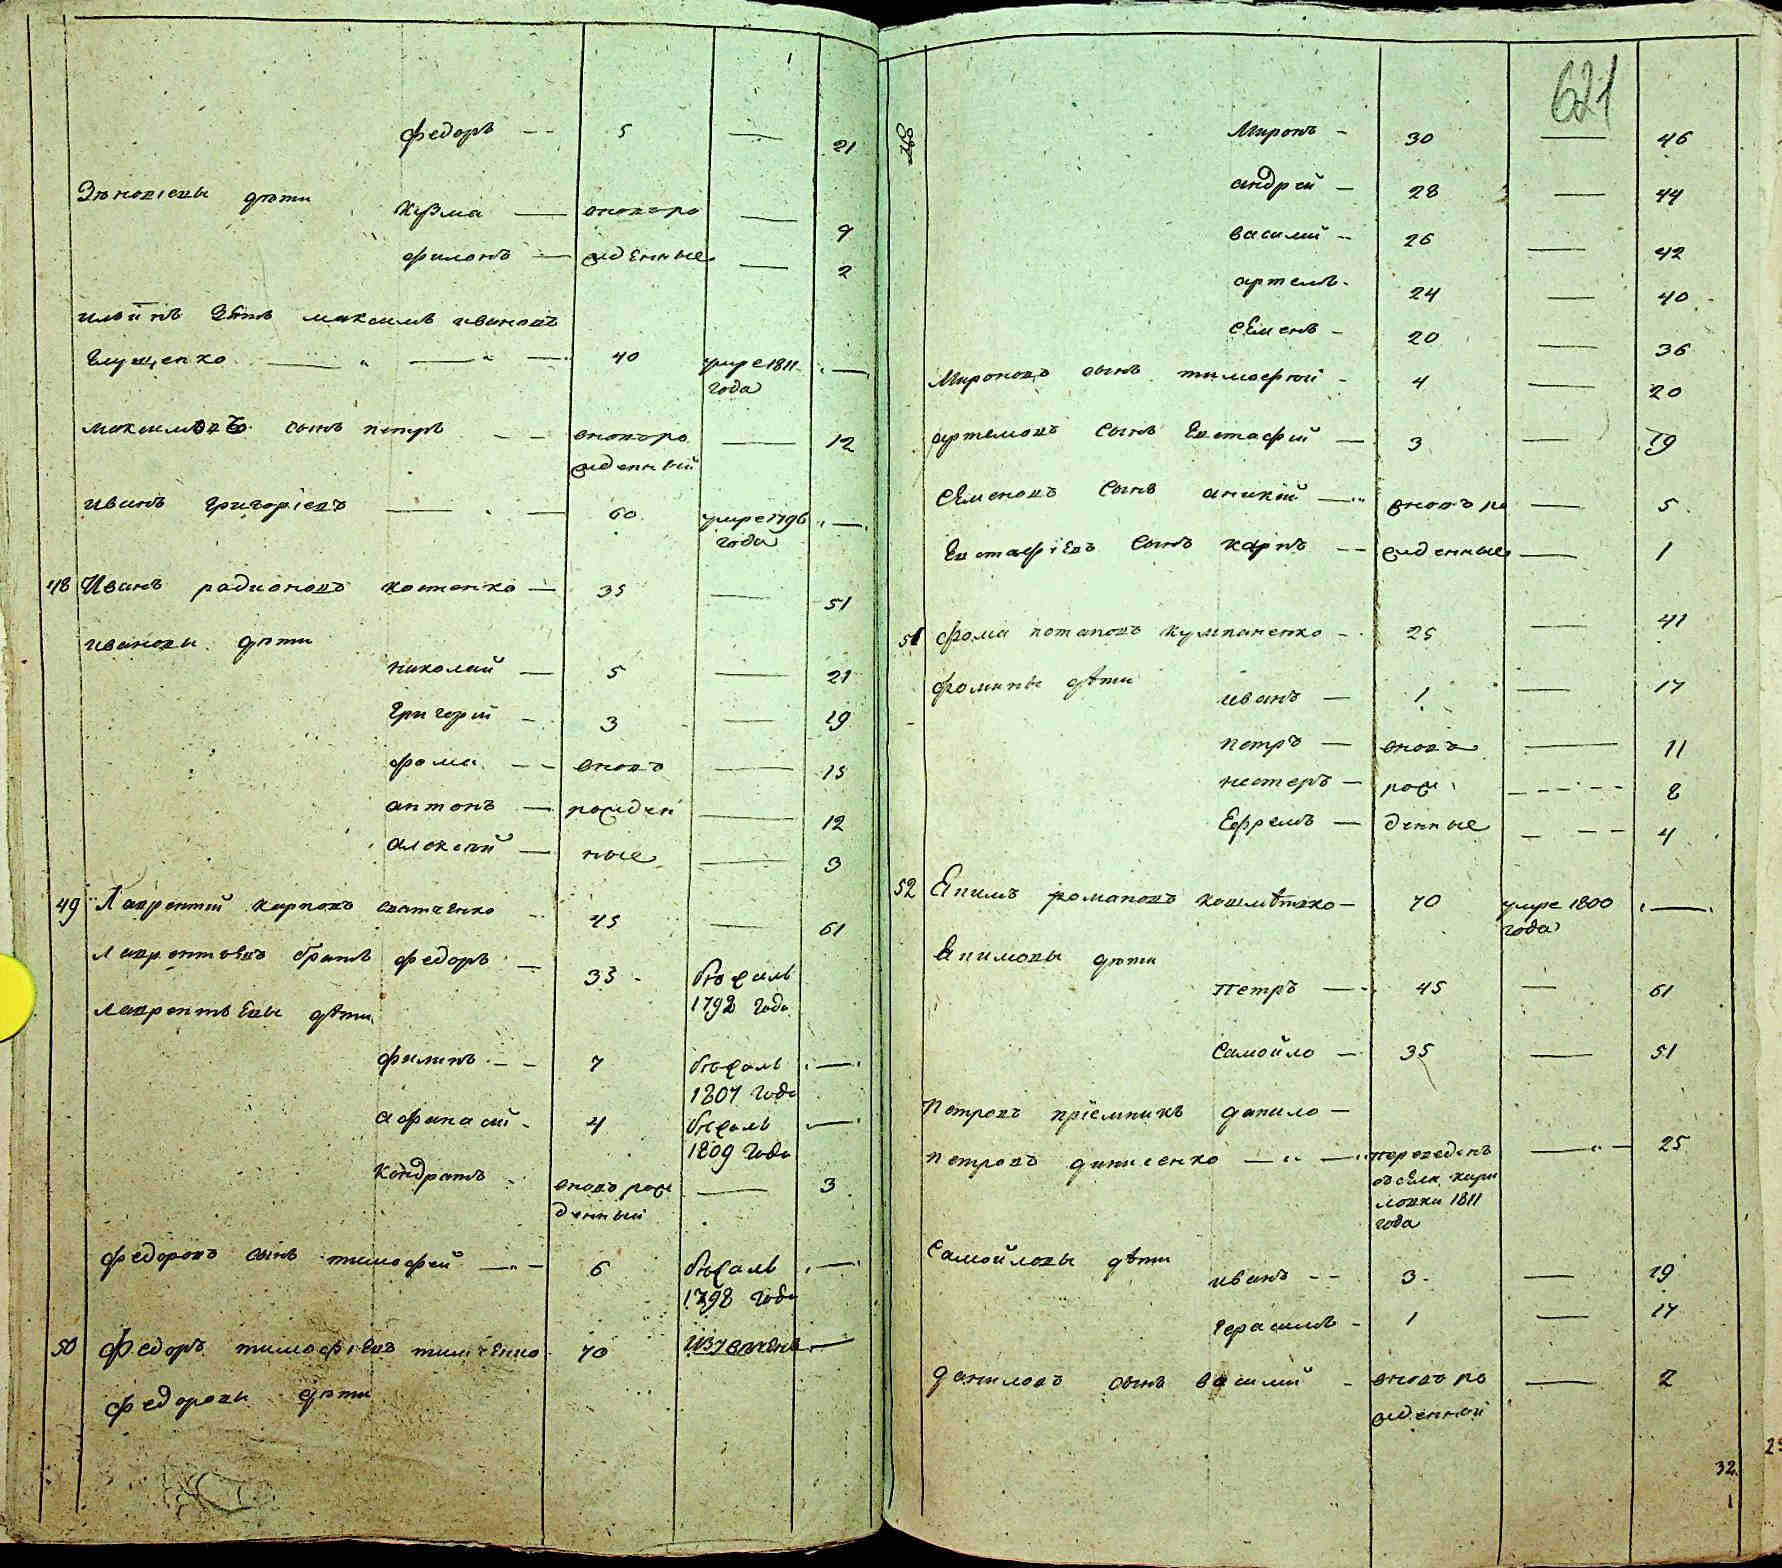 федоръ -- 5 — 21
Зѣновіевы дѣти
кузма — вновъро — 9
филонъ — жденные — 2
ильинъ зять максимъ ивановъ
Глущенко — " — " — 40 умре 1811 —
года
максимовъ сынъ петръ -- вновъро — 12
жденный
иванъ григоріевъ — 60 умре 1796 —
года
48 Иванъ радионовъ костенко — 35 — 51
ивановы дѣти
николай — 5 — 21
Григорій — 3 — 19
фома — вновъ — 15
антонъ — рожден — 12
алексѣй — ные — 3
49 Лаврентий карповъ - 45 — 61
лаврентьевъ братъ федоръ — 33 - бѣжалъ
1792 года
лаврентьевы дѣти
филипъ -- 7 бѣжалъ —
1807 года
афанасий - 4 бѣжалъ —
1809 года
кондратъ - вновъ рож — 3
денный
федоровъ сынъ тимофей — 6 бѣжалъ —
1798 года
50 Федоръ тимофіевъ тимченко 70 —
федоровы дѣти
621
Миронъ - 30 — 46
андрей — 28 — 44
василий -- 26 — 42
артемъ - 24 — 40
семенъ - 20 — 36
Мироновъ сынъ тимофей - 4 — 20
артемовъ сынъ Евстафий — 3 — 19
Семеновъ сынъ аникій — вновъ ро — 5
Евстафіевъ сынъ карпъ -- жденные — 1
51 фома потаповъ кумпаненко - 25 — 41
фомины дѣти
иванъ — 1 — 17
петръ — вновъ — 11
нестеръ — рож — 8
Ефремъ — денные — 4
52 Епимъ романовъ — 70 умре 1800 —
года
Епимовы дѣти
петръ — 45 — 61
Самойло — 35 — 51
Петровъ пріемникъ данило —
петровъ денисенко — " — переведенъ — " — 25
съ села кири
ловки 1811
года
Самойловы дѣти
иванъ -- 3 - — 19
герасимъ - 1 — 17
даниловъ сынъ василий - вновъ ро — 2
жденной
32
1